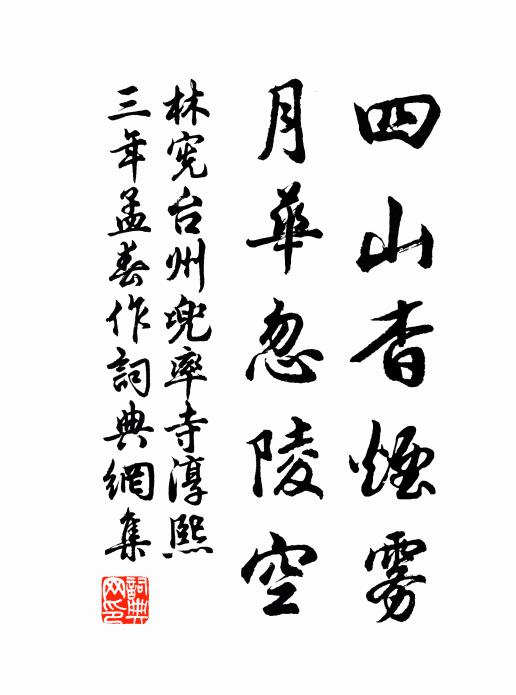 四山杳煙霧
月華忽陵空
林憲台州兜率寺淳熙
三年孟春作詞典網集
詞典網印